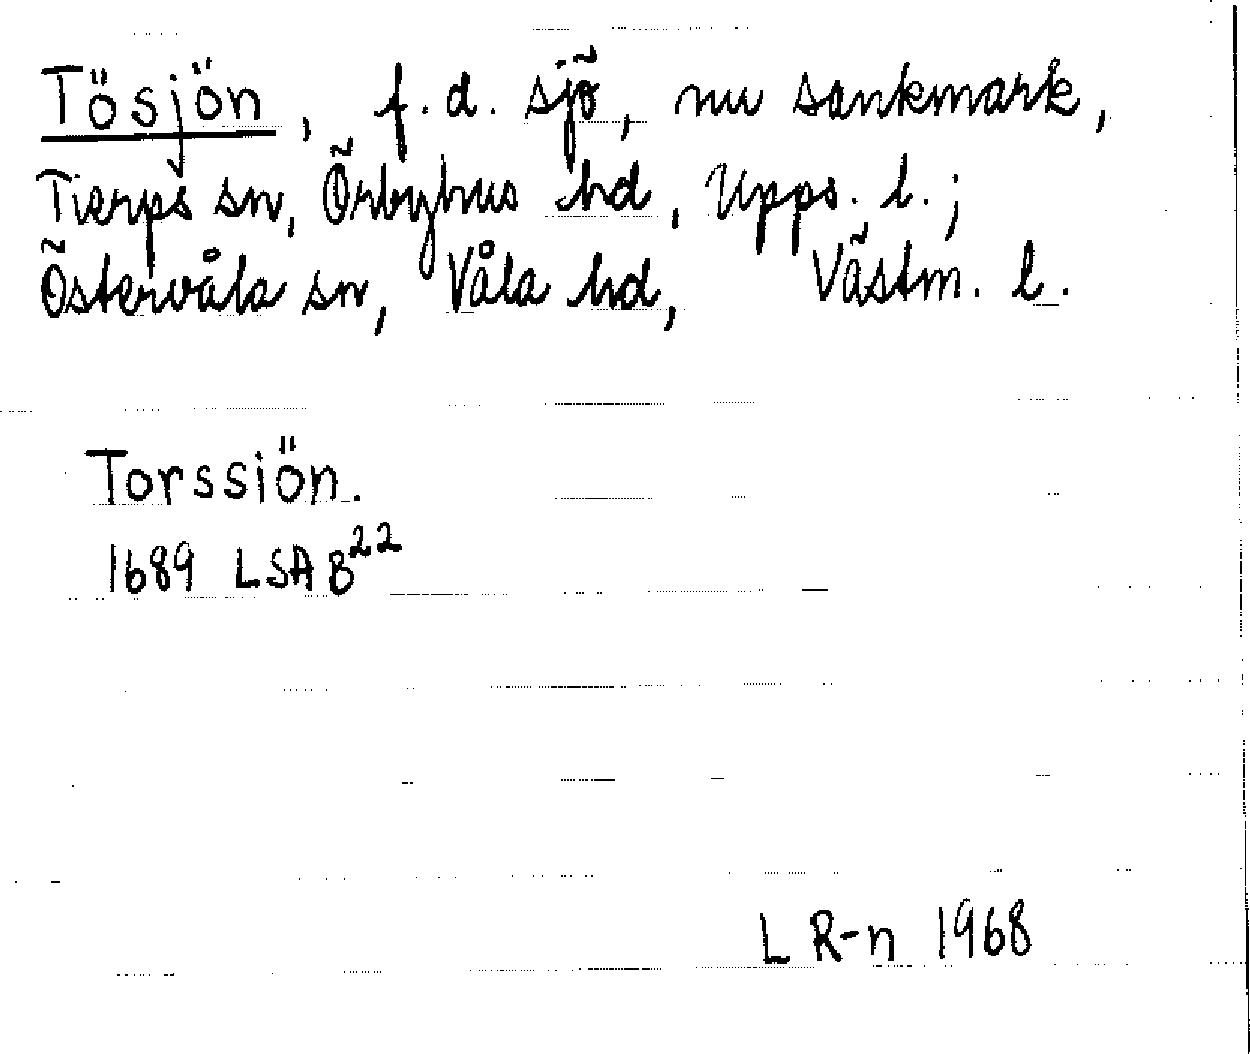 Tösjön, f.d. sjö, nu sankmark,
Tierps sn, Örbyhus hd, Upps. l.;
Östervåla sn, Våla hd, Västm. l.
Torssiön.
1689 LSA B²²
L R-n 1968